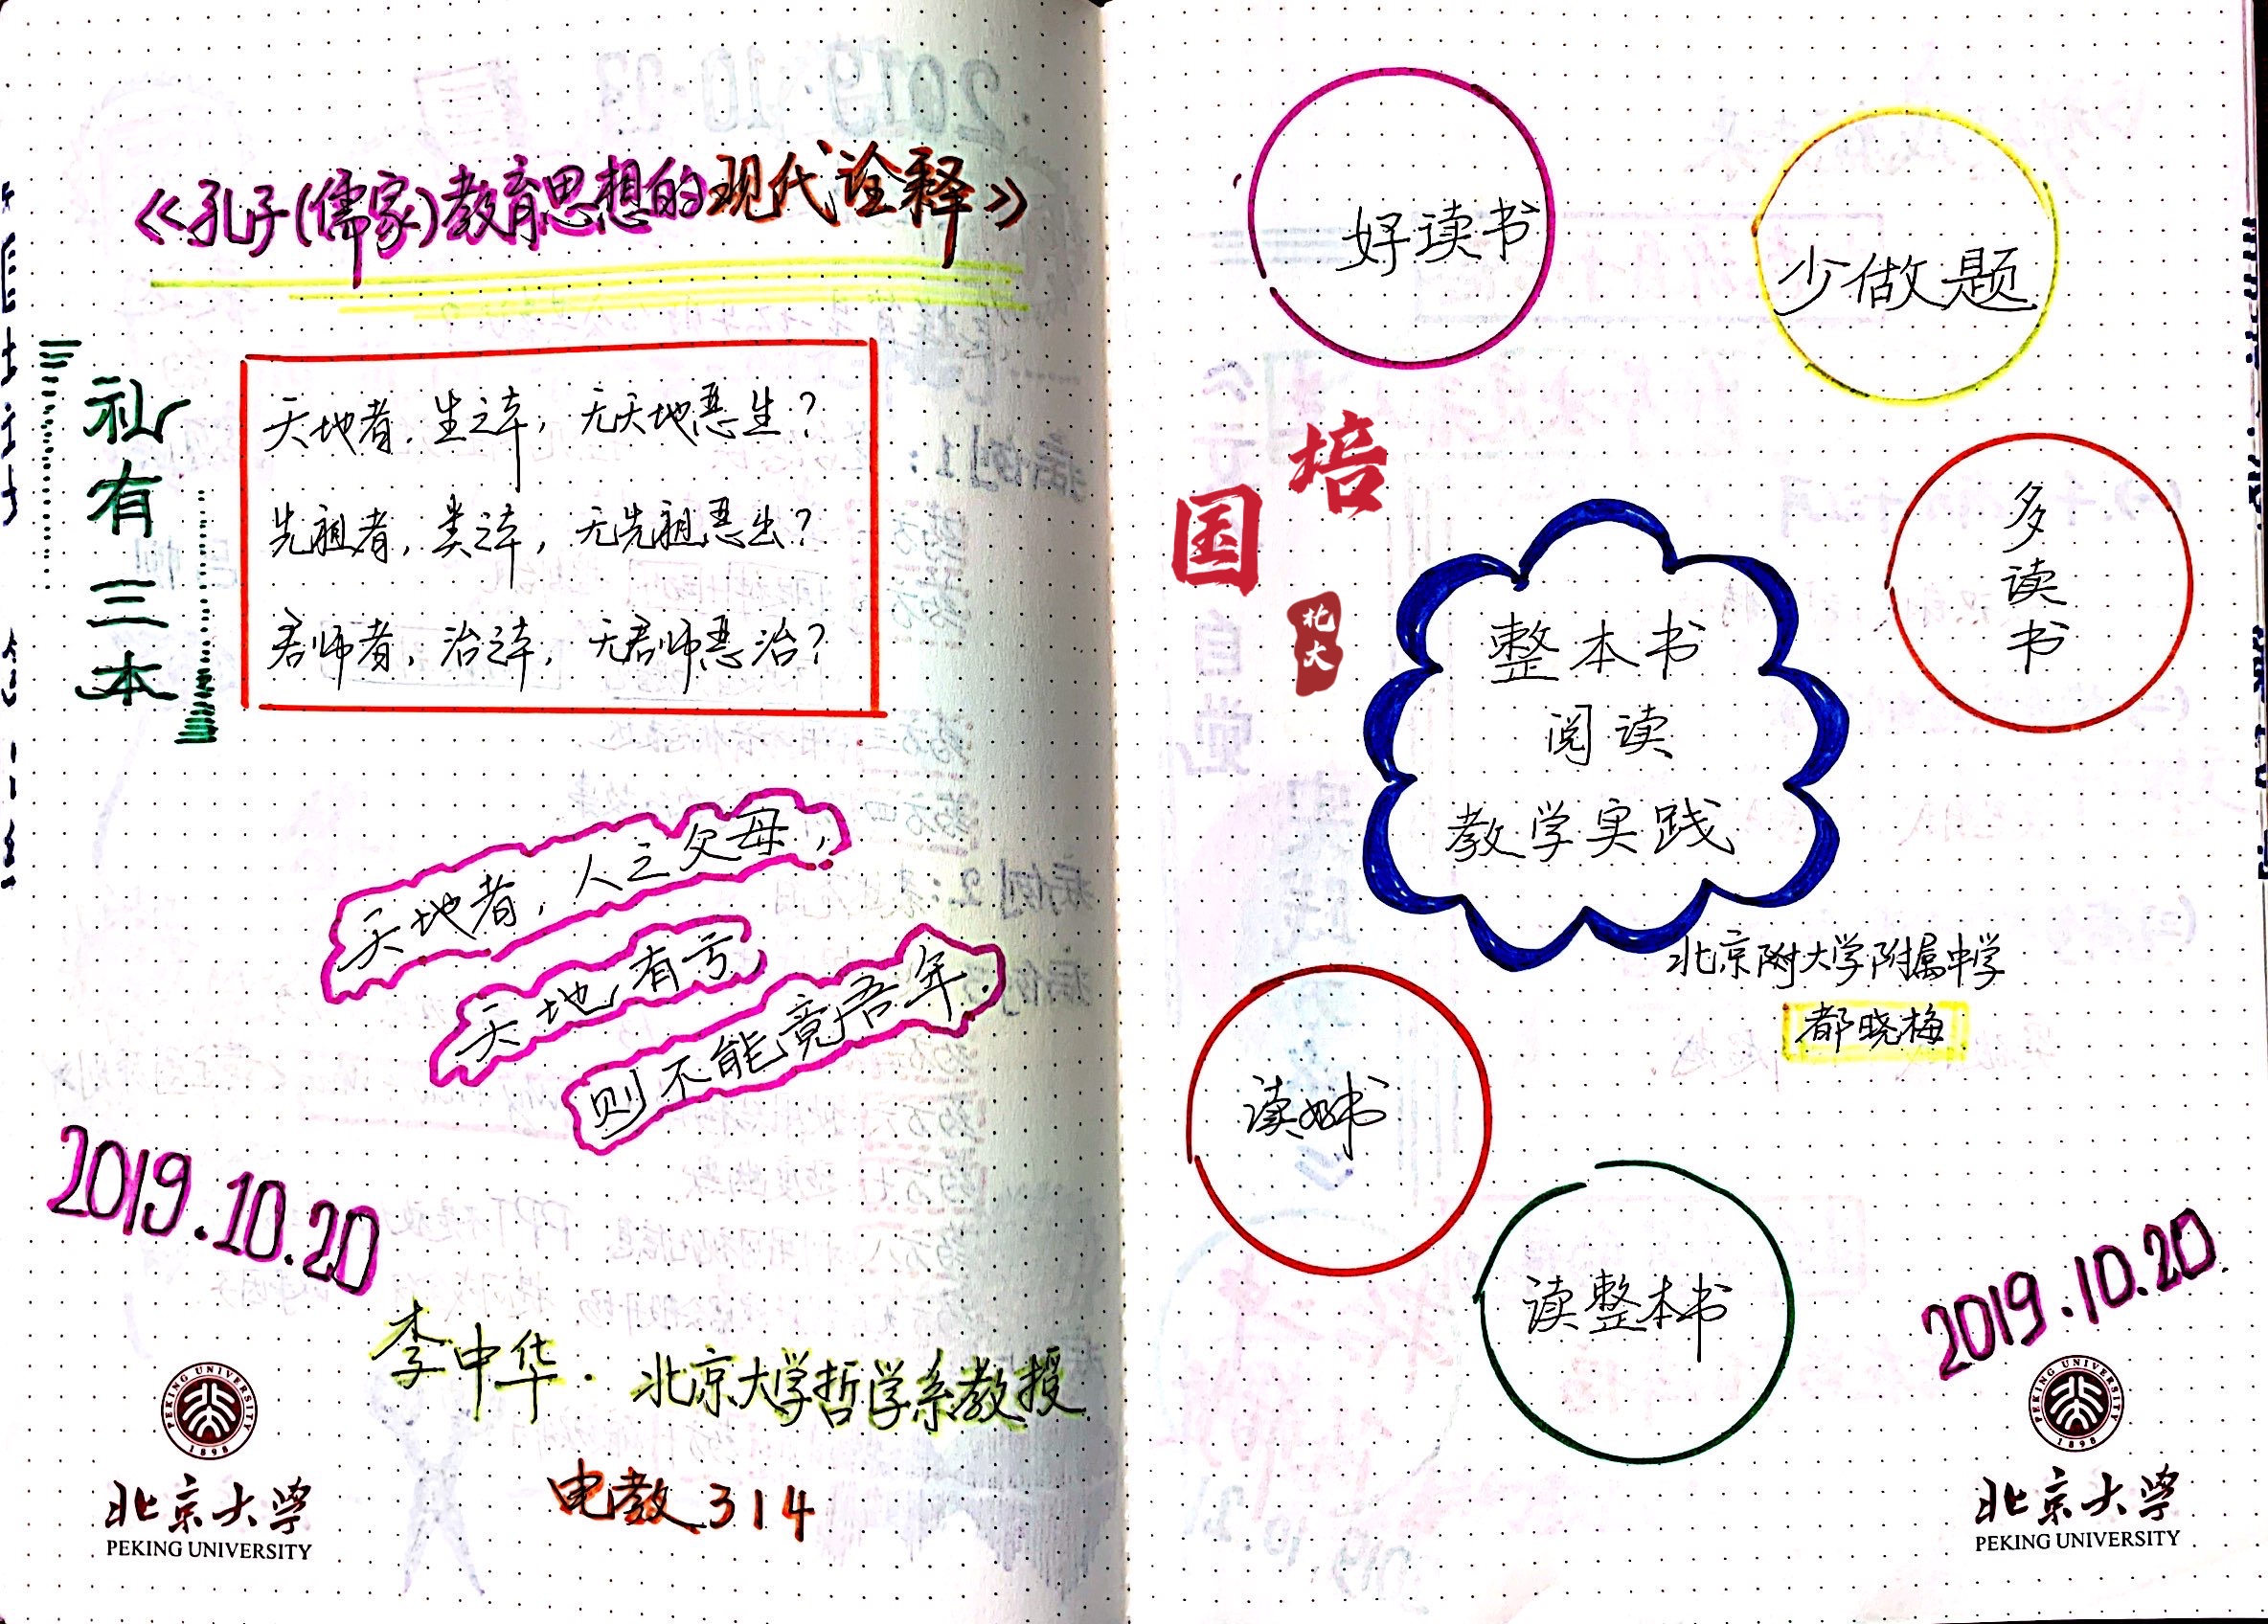 《孔子(儒家)教育思想的现代诠释》
礼有三本
天地者，生之本，无天地恶生？
先祖者，类之本，无先祖恶出？
君师者，治之本，无君师恶治？
天地者，人之父母，
天地有亏
则不能竟吾年.
2019.10.20
李中华.北京大学哲学系教授
电教314
PEKING UNIVERSITY
1898
北京大学
PEKING UNIVERSITY
好读书
少做题
多读书
国培
北大
整本书
阅读
教学实践
北京附大学附属中学
都晓梅
读好书
读整本书
2019.10.20.
PEKING UNIVERSITY
1898
北京大学
PEKING UNIVERSITY